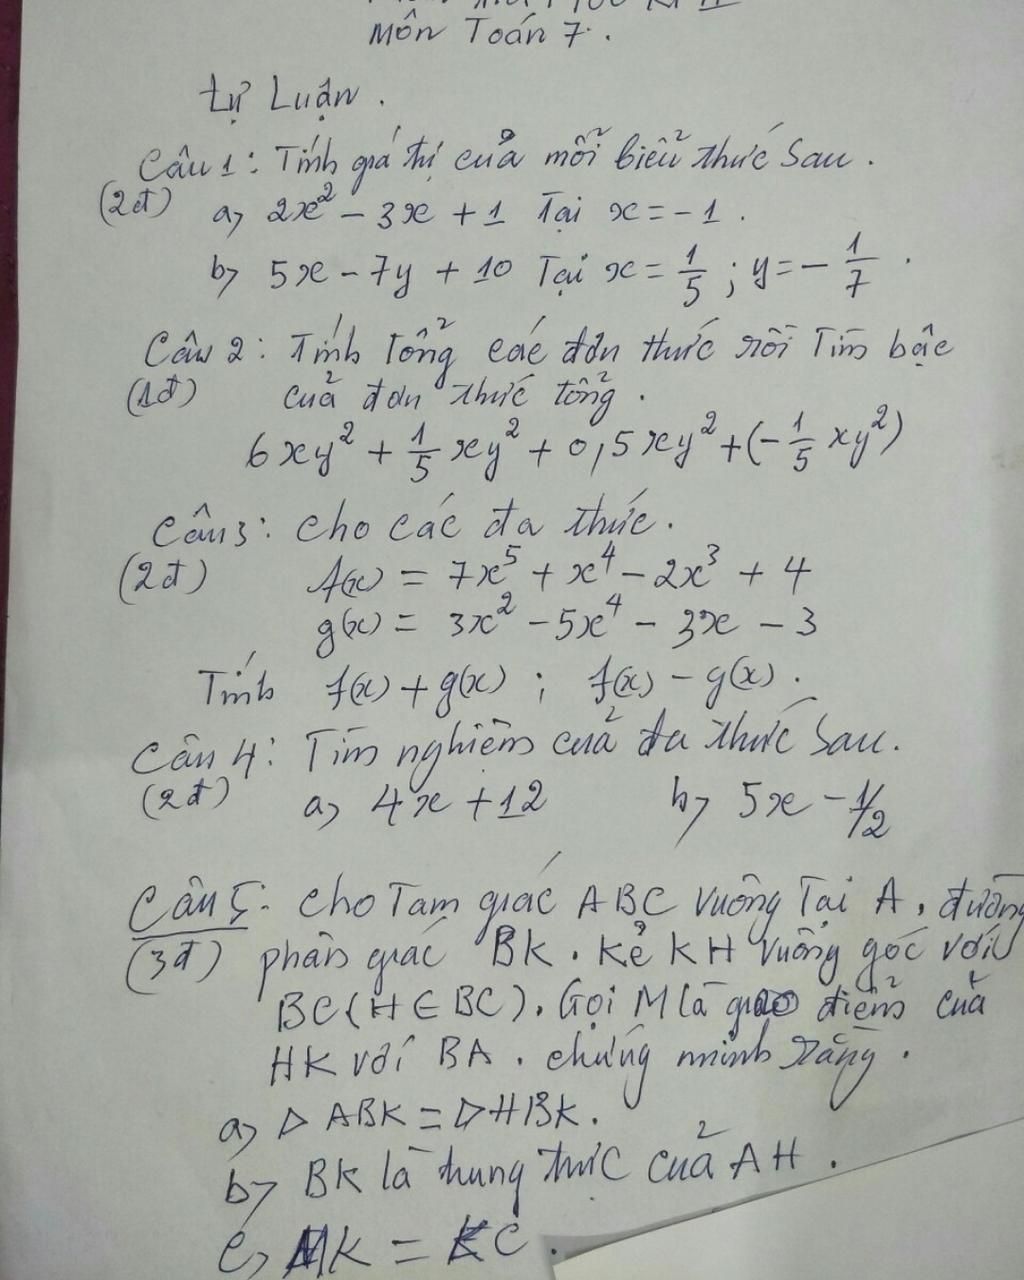 Môn Toán 7.
Tự Luận.
Câu 1: Tính giá trị của mỗi biểu thức sau.
(2đ) a, 2x² - 3x + 1 Tại x = -1.
b, 5x - 7y + 10 Tại x = 1/5 ; y = - 1/7.
Câu 2: Tính Tổng các đơn thức rồi Tìm bậc
(1đ) của đơn thức tổng.
6xy² + 1/5 xy² + 0,5xy² + (- 1/5 xy²)
Câu 3: cho các đa thức.
(2đ) f(x) = 7x⁵ + x⁴ - 2x³ + 4
g(x) = 3x² - 5x⁴ - 3x - 3
Tính f(x) + g(x) ; f(x) - g(x).
Câu 4: Tìm nghiệm của đa thức sau.
(2đ) a, 4x + 12 b, 5x - 1/2
Câu 5: cho Tam giác ABC vuông Tại A, đường
(3đ) phân giác BK. Kẻ KH vuông góc với
BC (H ∈ BC). Gọi M là giao điểm của
HK với BA. chứng minh rằng.
a, ▷ ABK = ▷ HBK.
b, BK là trung trực của AH.
c, MK = KC.